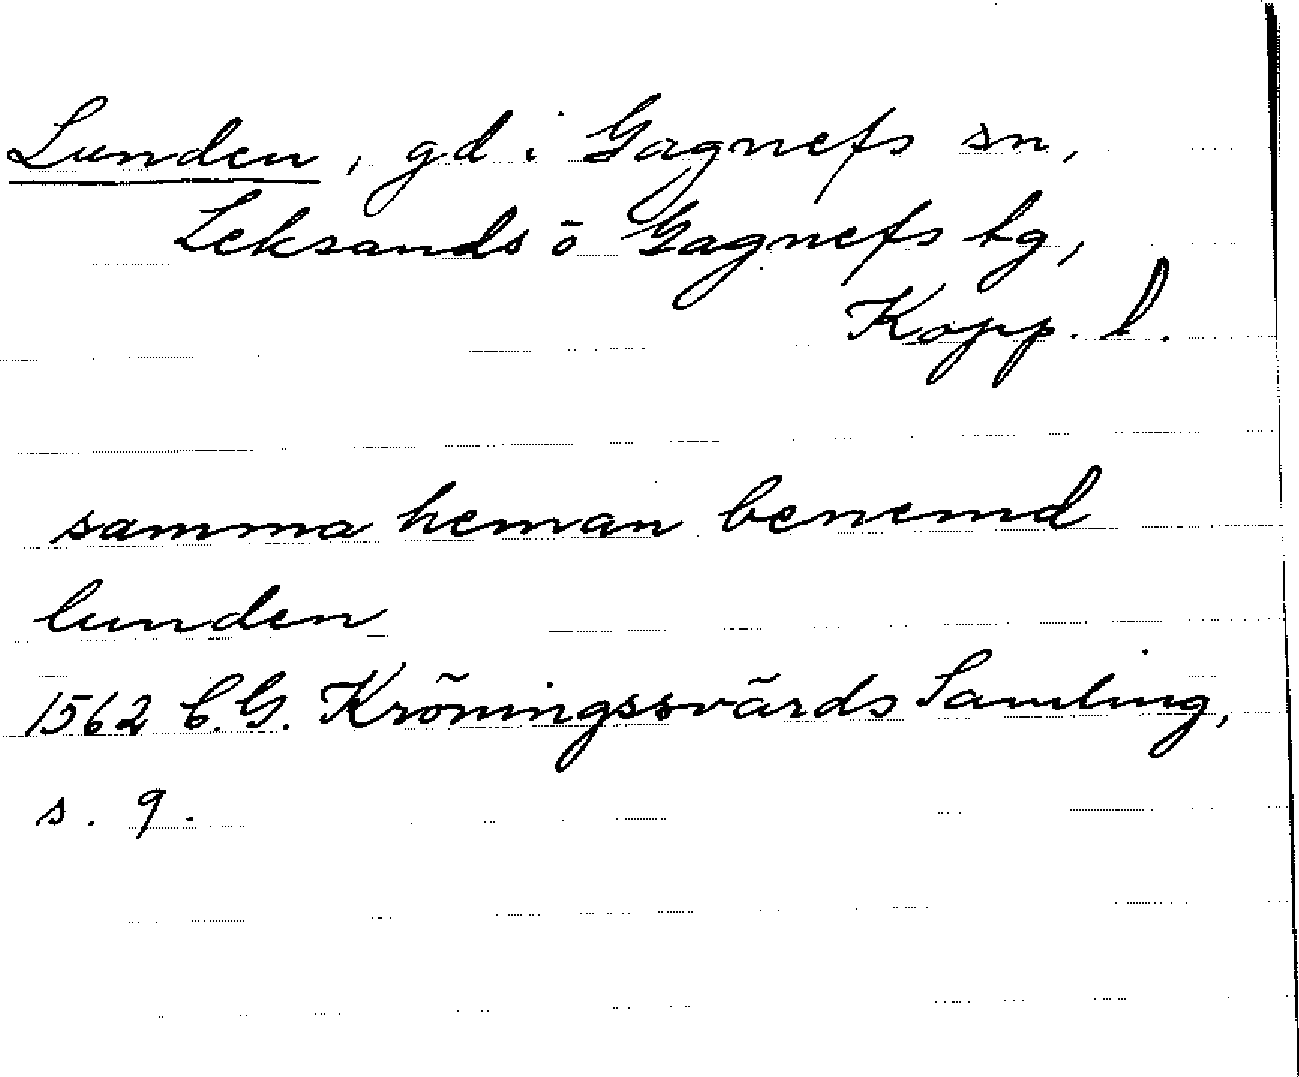 Lunden, gd i Gagnefs sn,
Leksands o Gagnefs tg,
Kopp. l.
samma heman benemd
lunden
1562 C.G. Kröningssvärds Samling,
s. 9.